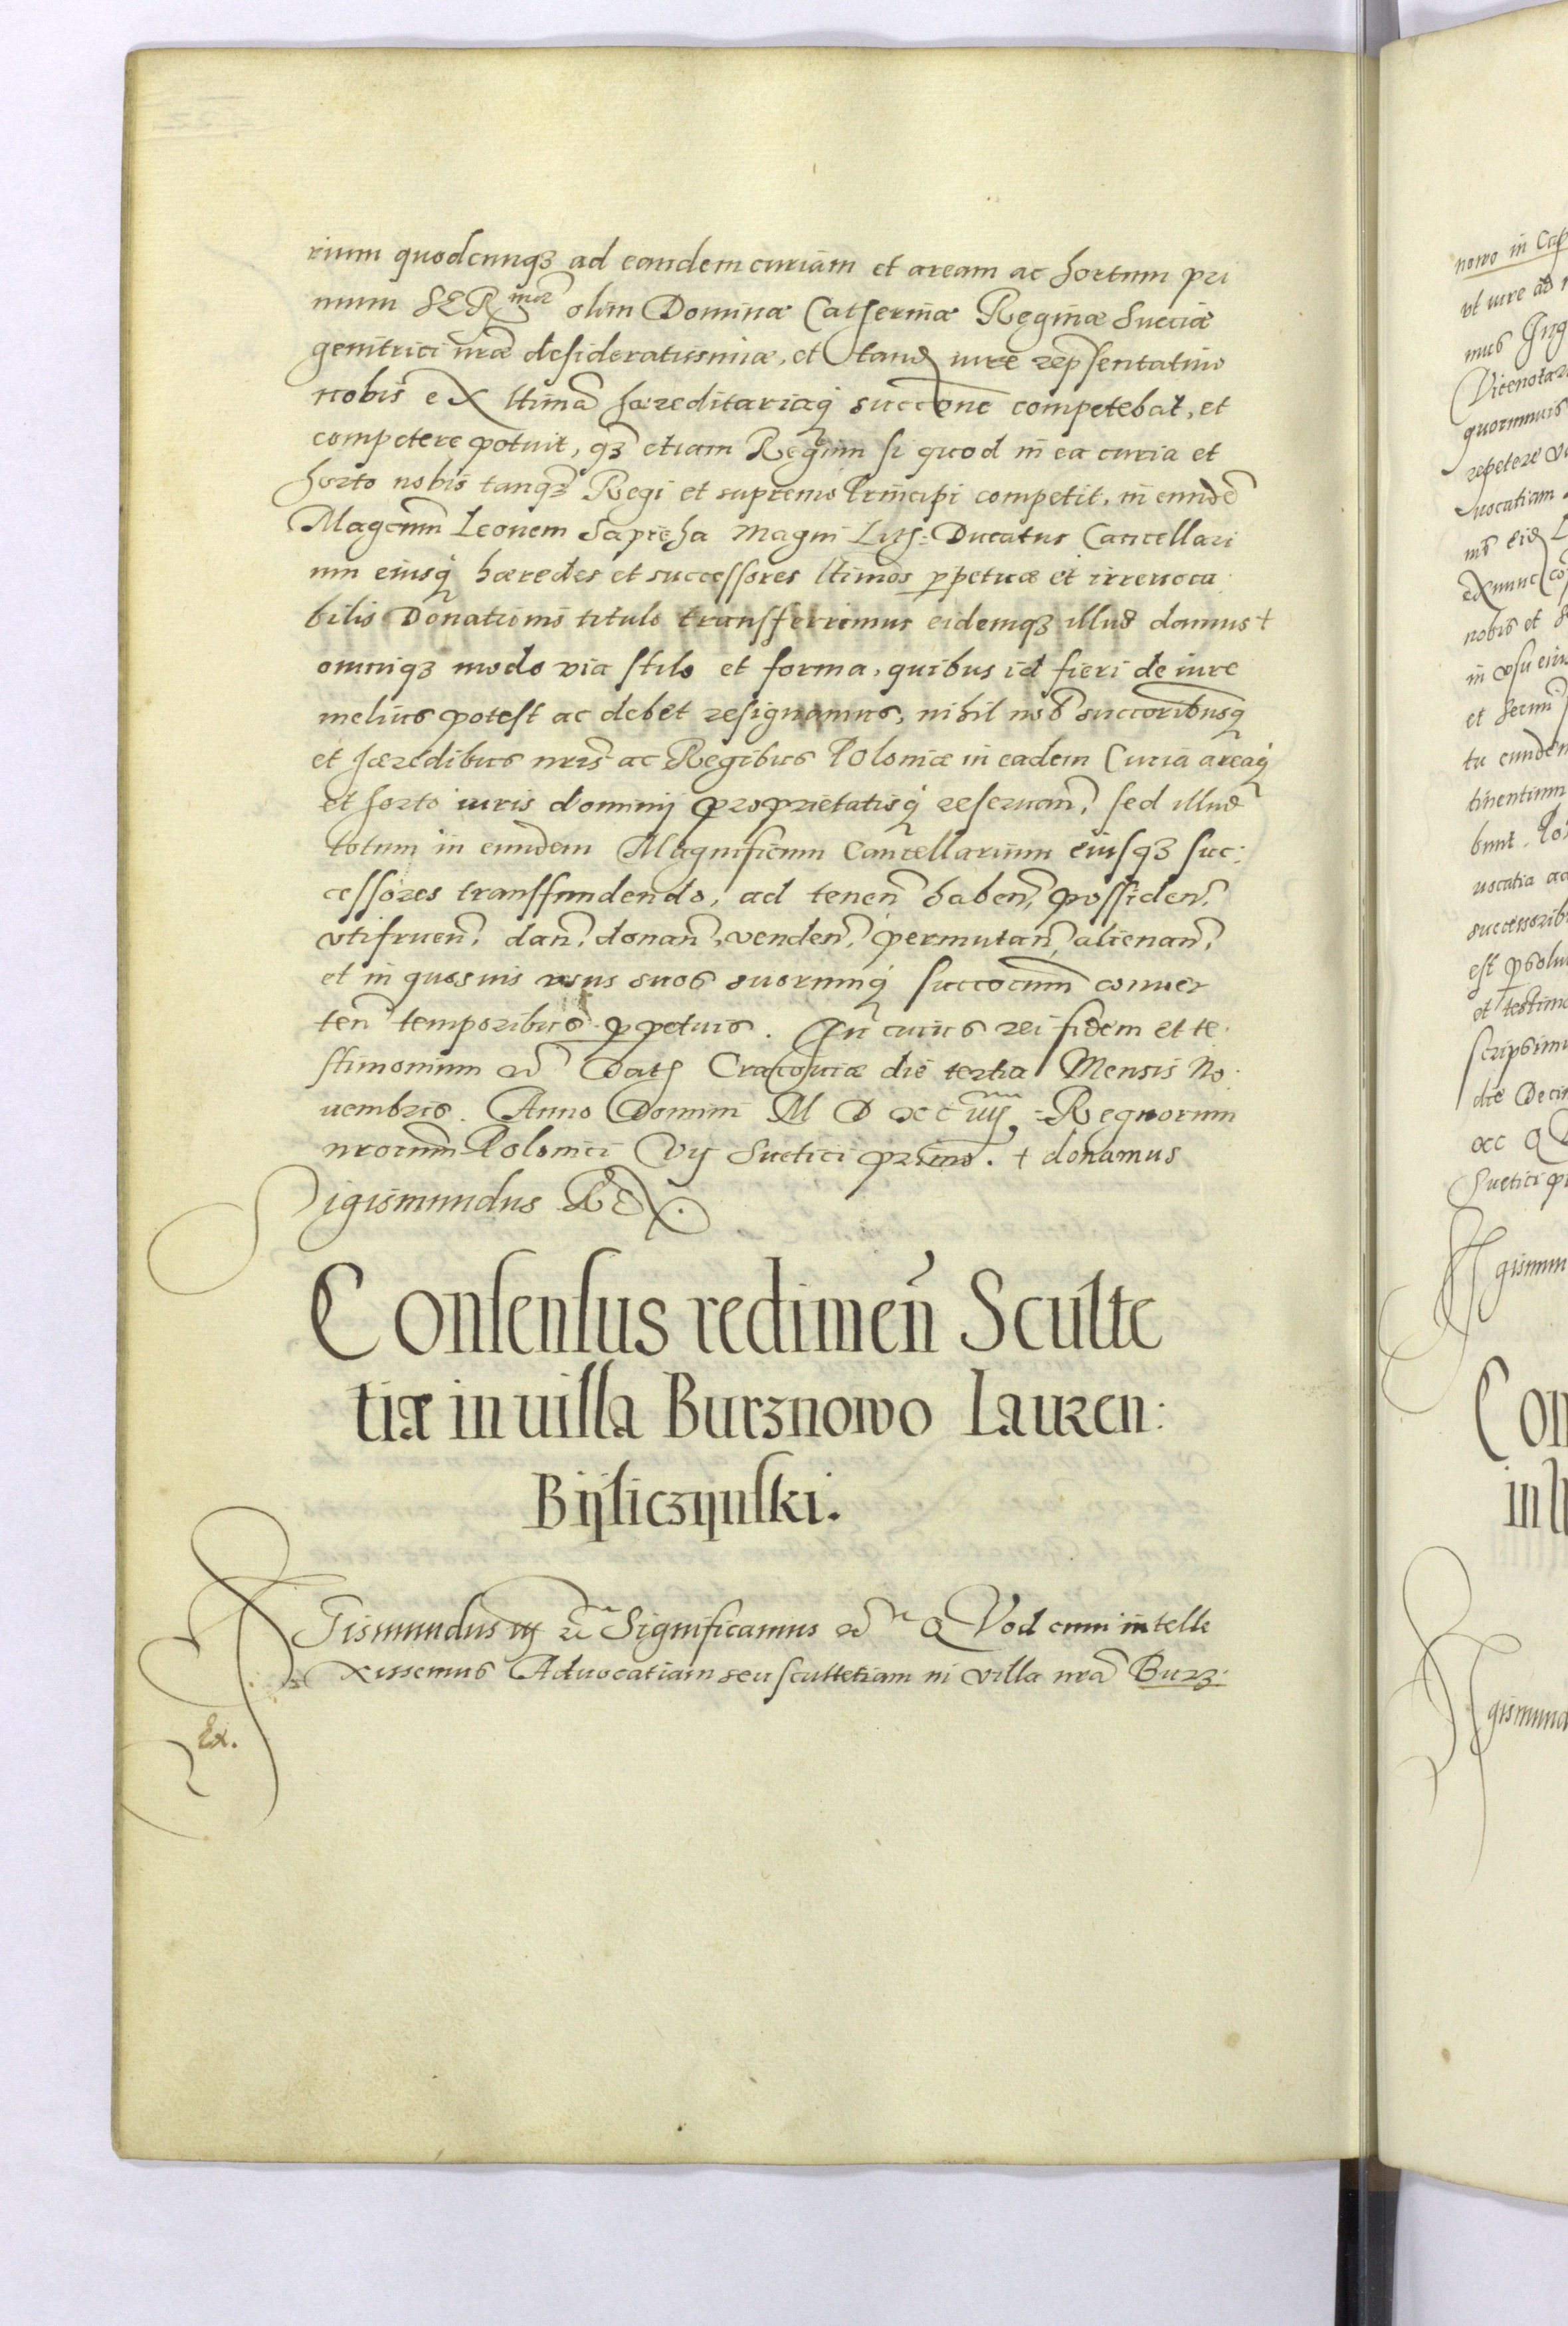 rium quodcunqꝫ ad eandem curiam et aream ac hortum pri
mum SERmæ olim Dominæ Catherinæ Reginæ Sueciæ
genitrici nrae desideratissimæ, et tand iure repsentatiuo
nobis ex ltima hæreditariaq succone competebat, et
competere potuit, qꝫ etiam Regium si quod in ea curia et
horto nobis tanqꝫ Regi et supremo Principi competit, in eunde
Magcum Leonem Sapieha Magni Lith: Ducatus Cancellari
um eiusq hæredes et successores ltimos ppetuæ et irreuoca
bilis Donationis titulo transferrimus eidemqꝫ illud damus +
omniqꝫ modo via stilo et forma, quibus id fieri de iure
melius potest ac debet resignamus, nihil nob succoribusq
et hæredibus nris ac Regibus Poloniæ in eadem Curia areaq
et horto iuris dominij proprietatisq reseruan, sed illud
totum in eundem Magnificum Cancellarium eiusqꝫ suc:
cessores transfundendo, ad tenen haben, possiden,
vtifruen, dan, donan, venden, permutan, alienan,
et in quosuis usus suos suorumq succocum conuer
ten temporibus ppetuis. In cuius rei fidem et te
stimonium etc Dath Cracouiæ die tertia Mensis No
uembris. Anno Domini M D XC iiij. Regnorum
nrorum Polonici Vij Suetici primo. + donamus
Sigismundus REX.
Consensus redimen Sculte
tiæ in uilla Burznowo Lauren:
Bÿsliczÿnski.
Sigismundus iij etc Significamus etc QVod cum intelle
xissemus Aduocatiam seu scultetiam in villa nra Burz:
Ex.